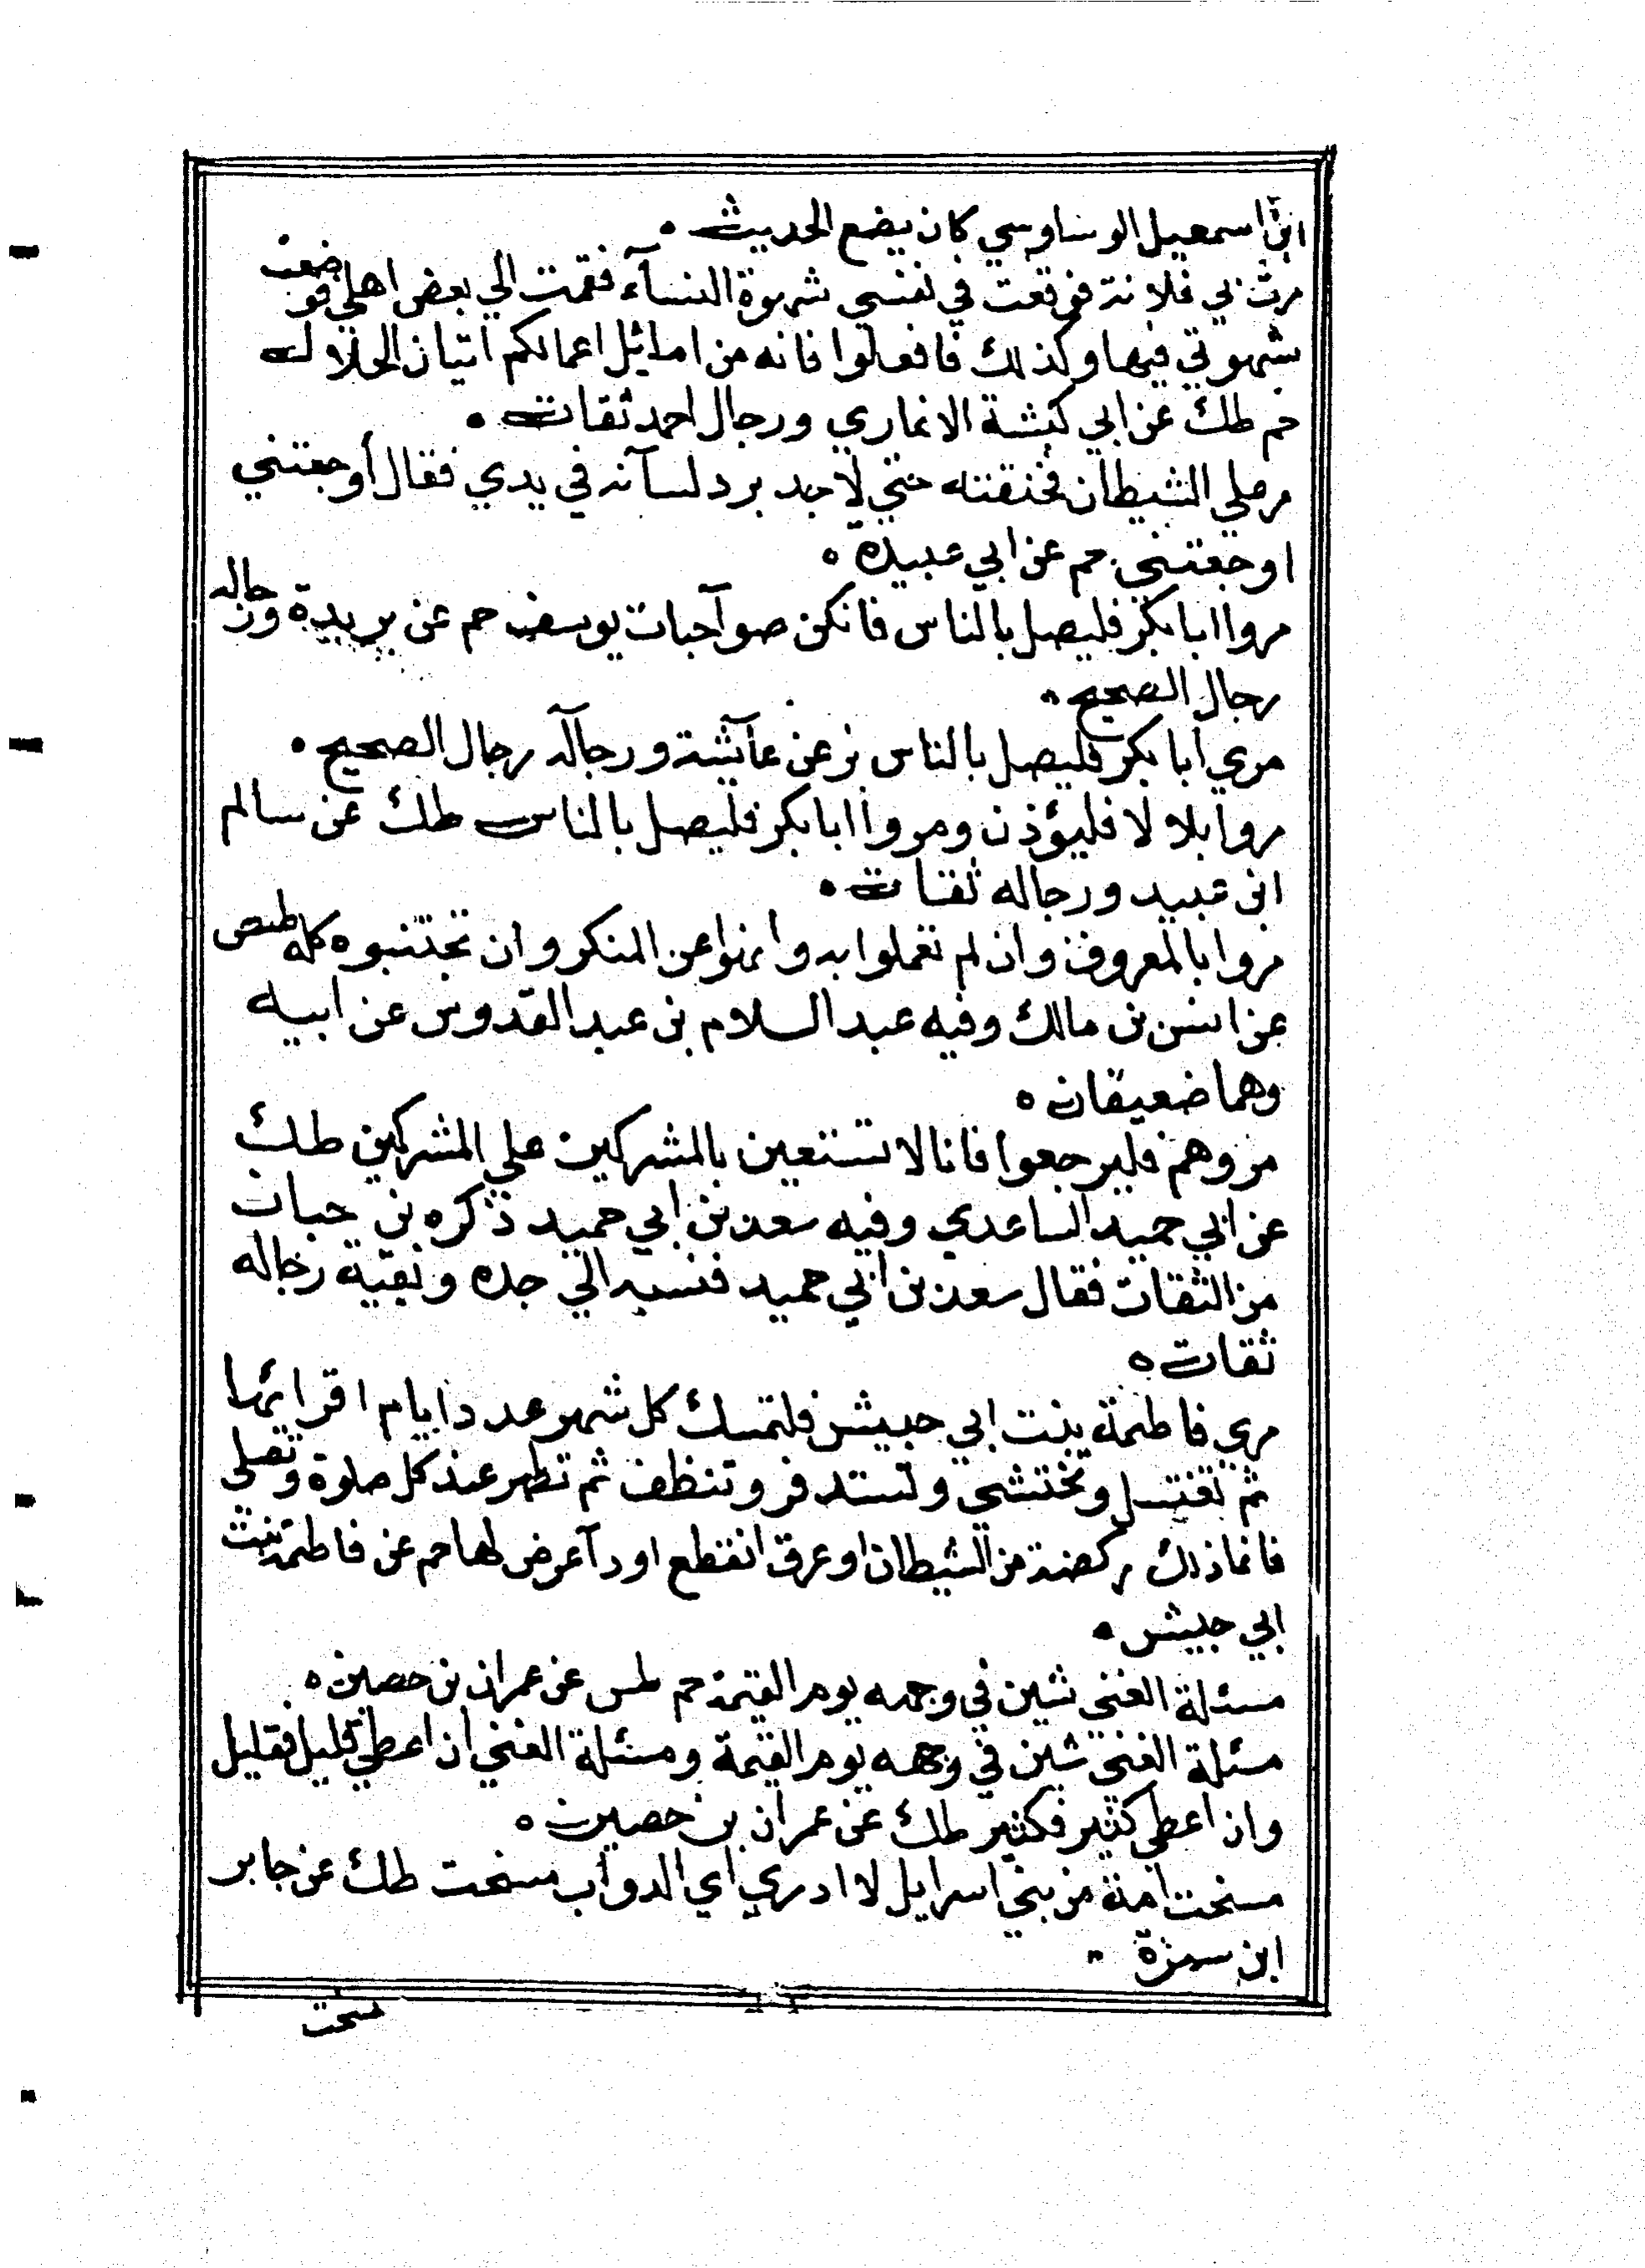 ابن اسمعيل الوساوسي كان يضع الحديث ه
مرت بي فلانة فوقعت في نفسي شهوة النسآء فقمت الي بعض اهلي فوضعت
شهوتي فيها وكذلك فافعلوا فانه من اماثيل اعمالكم اتيان الحلال
حم طك عن ابي كبشة الانماري ورجال احمد ثقات ه
مر علي الشيطان فخنقته حتي لاجد برد لسآنه في يدي فقال أوجعتني
اوجعتني حم عن ابي عبيدة ه
مروا ابا بكر فليصل بالناس فانكن صوآحبات يوسف حم عن بريدة ورجاله
رجال الصحيح ه
مري أبا بكر فليصل بالناس بز عن عآيشة ورجآله رجال الصحيح ه
مروا بلالا فليؤذن ومروا ابا بكر فليصل بالناس طك عن سالم
ابن عبيد ورجاله ثقات ه
مروا بالمعروف وان لم تعملوا به وانهوا عن المنكر وان تجتنبوه كله طص
عن انس بن مالك وفيه عبد السلام بن عبد القدوس عن ابيه
وهما ضعيفان ه
مروهم فليرجعوا فانا لا نستعين بالمشركين علي المشركين طك
عن ابي حميد الساعدي وفيه سعد بن ابي حميد ذكره بن حبان
من الثقات فقال سعد بن ابي حميد فنسبه الي جده وبقية رجاله
ثقات ه
مري فاطمة بنت ابي حبيش فلتمسك كل شهر عدد ايام اقرائها
ثم تغتسل وتحتشي وتستدفر وتنظف ثم تطهر عند كل صلوة وتصلي
فانما ذلك ركضة من الشيطان او عرق انقطع او دآ عرض لها حم عن فاطمة بنت
ابي حبيش ه
مسئلة الغني شين في وجهه يوم القيمة حم طس عن عمران بن حصين ه
مسئلة الغني شين في وجهه يوم القيمة ومسئلة الغني ان اعطي قليل فقليل
وان اعطي كثير فكثير طك عن عمران بن حصين ه
مسخت امة من بني اسرايل لا ادري اي الدواب مسخت طك عن جابر
ابن سمرة
مسخت